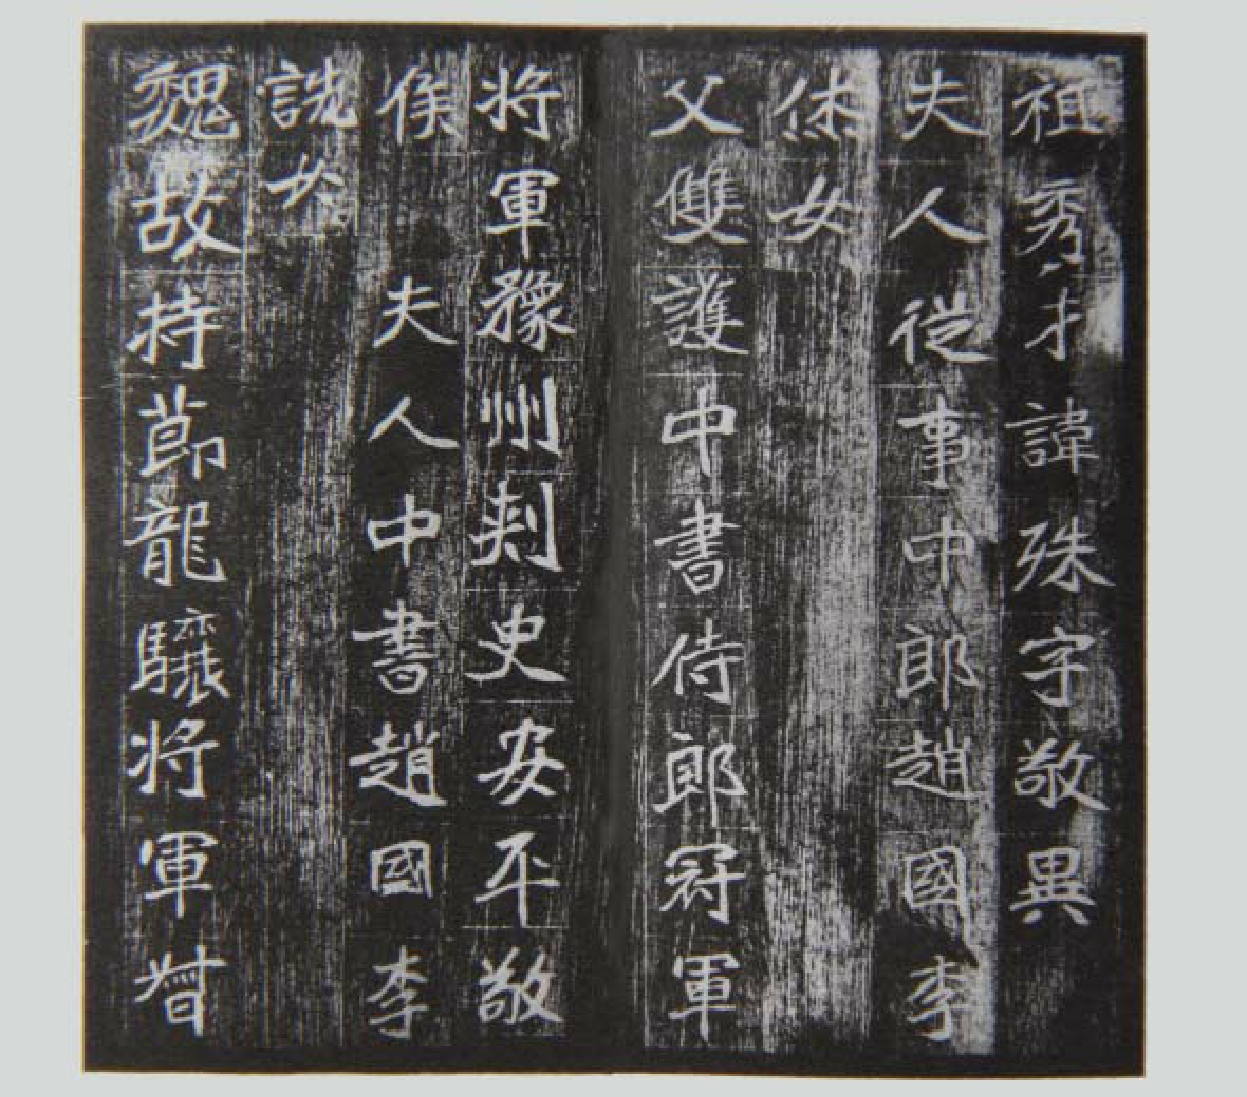 祖秀才諱殊字敬異
夫人從事中郎趙國李
休女
父雙護中書侍郎冠軍
將軍豫州刺史安平敬
侯夫人中書趙國李
詵女
魏故持節龍驤將軍督